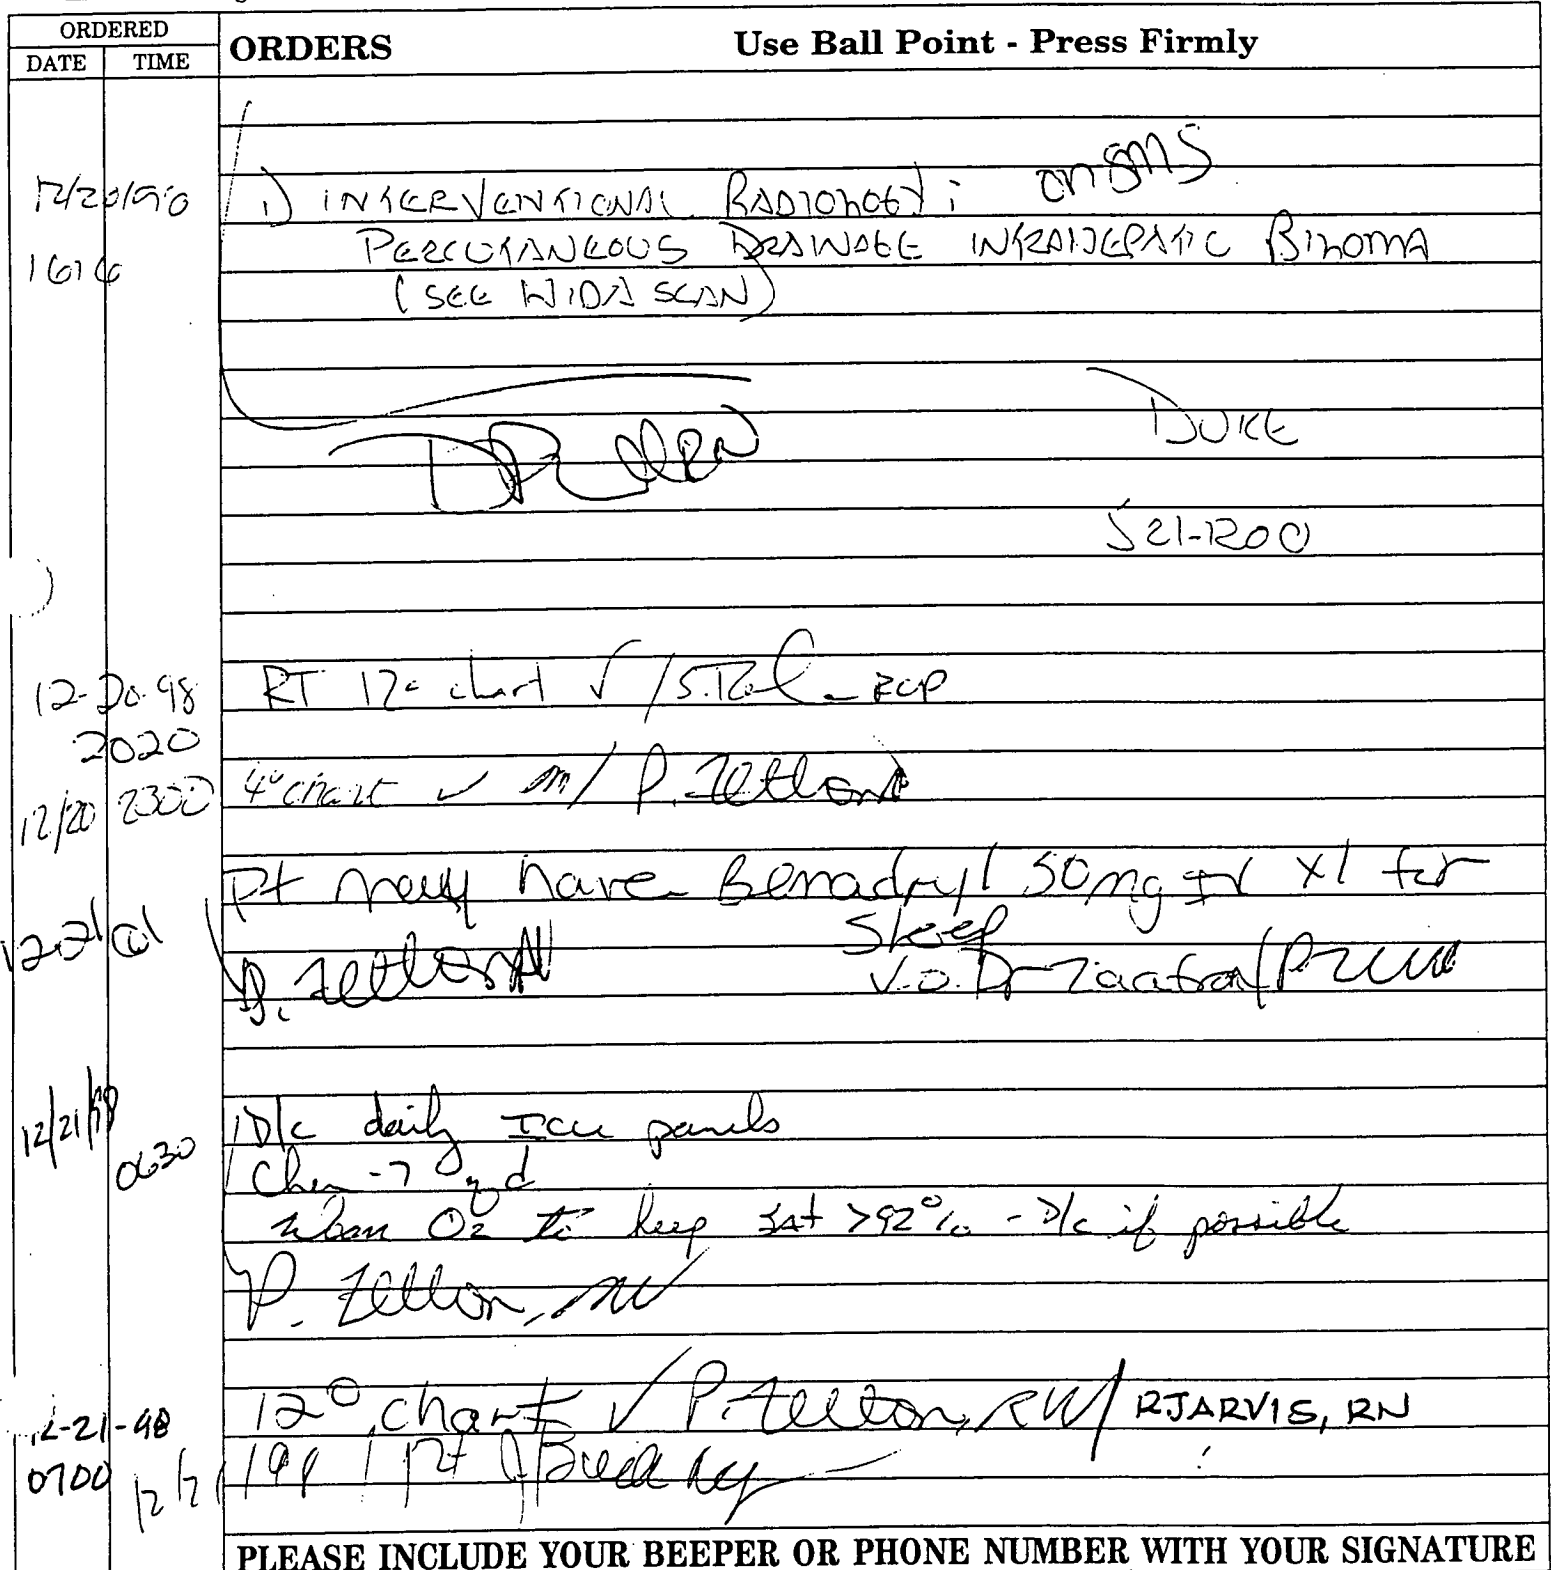 ORDERED
DATE TIME ORDERS Use Ball Point - Press Firmly
on SMS
12/20/98 1) INTERVENTIONAL RADIOLOGY:
PERCUTANEOUS DRAINAGE INTRAHEPATIC BILOMA
1616 (SEE HIDA SCAN)
DUKE
521-1200
12-20-98 RT 12° chart √ /
2020
12/20 2300 4° chart √ / P. Zettlon
Pt may have Benadryl 50mg IV x1 for
12-21 01 Sleep
P. Zettlon V.O. Dr
12/21/98 D/c daily ICU panels
0630 Chem-7 qd
wean O2 to keep sat >92% - D/c if possible
P. Zettlon, RN
12-21-98 12° chart √ P. Zettlon, RN / RJARVIS, RN
0700 12/21
PLEASE INCLUDE YOUR BEEPER OR PHONE NUMBER WITH YOUR SIGNATURE